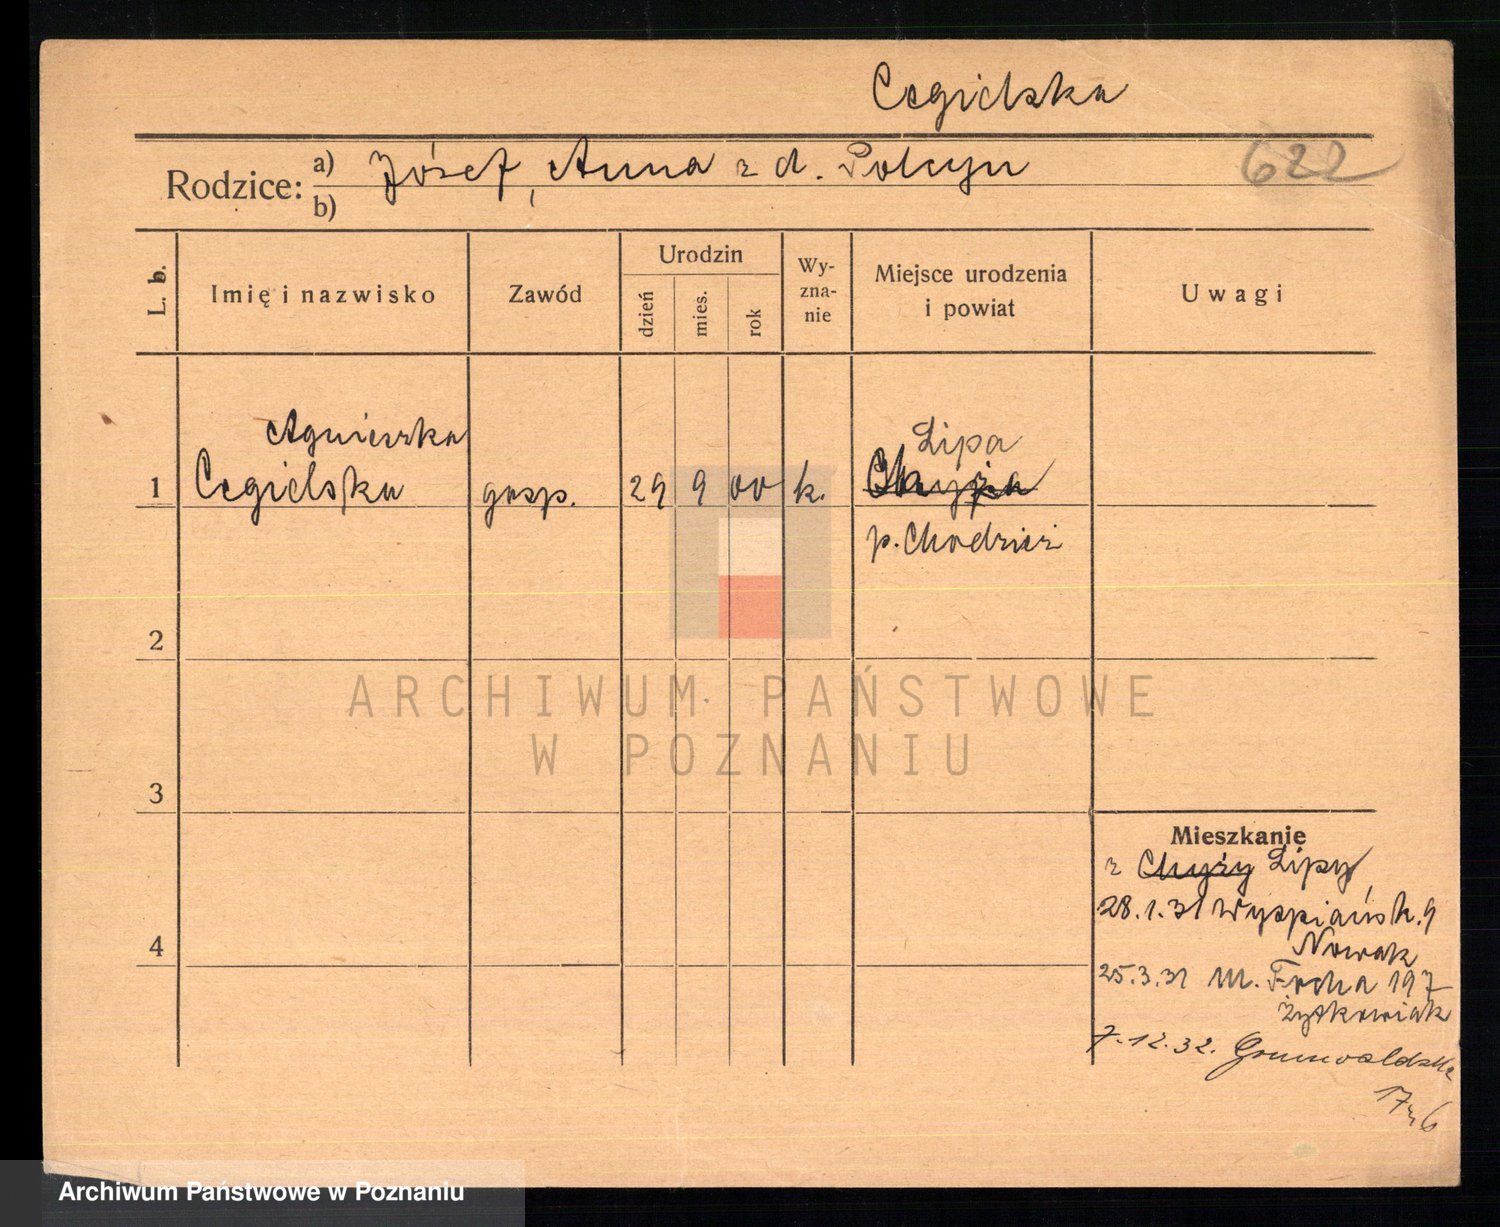 Cegielska
Rodzice: a) Józef, Anna z d. Polcyn
b)
622
L. b.
Imię i nazwisko
Zawód
Urodzin
dzień
mies.
rok
Wy-
zna-
nie
Miejsce urodzenia
i powiat
Uwagi
Agnieszka
Lipa
1 Cegielska gosp. 29 9 00 k. Chyża
p. Chodzież
2
ARCHIWUM PAŃSTWOWE
W POZNANIU
3
Mieszkanie
z Chyży Lipy,
28.1.31 Wyspiańsk. 9
Nowak
4
25.3.31 M. Focha 197
Żytkowiak
7.12.32. Grunwaldzka
17 m 6
Archiwum Państwowe w Poznaniu